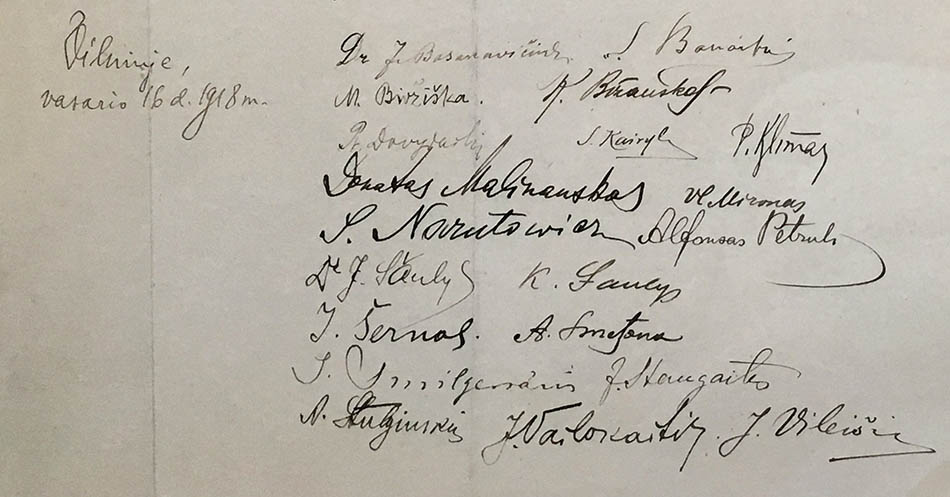 Vilniuje,
vasario 16 d. 1918 m.
Dr J. Basanavičius. S. Banaitis
M. Biržiška. K. Bizauskas
Pr. Dovydaitis S. Kairys P. Klimas
Donatas Malinauskas Vl. Mironas
S. Narutowicz Alfonsas Petrulis
Dr J. Šaulys K. Šaulys
J. Šernas. A. Smetona
J. Smilgevičius J. Staugaitis
A. Stulginskis J. Vailokaitis. J. Vileišis